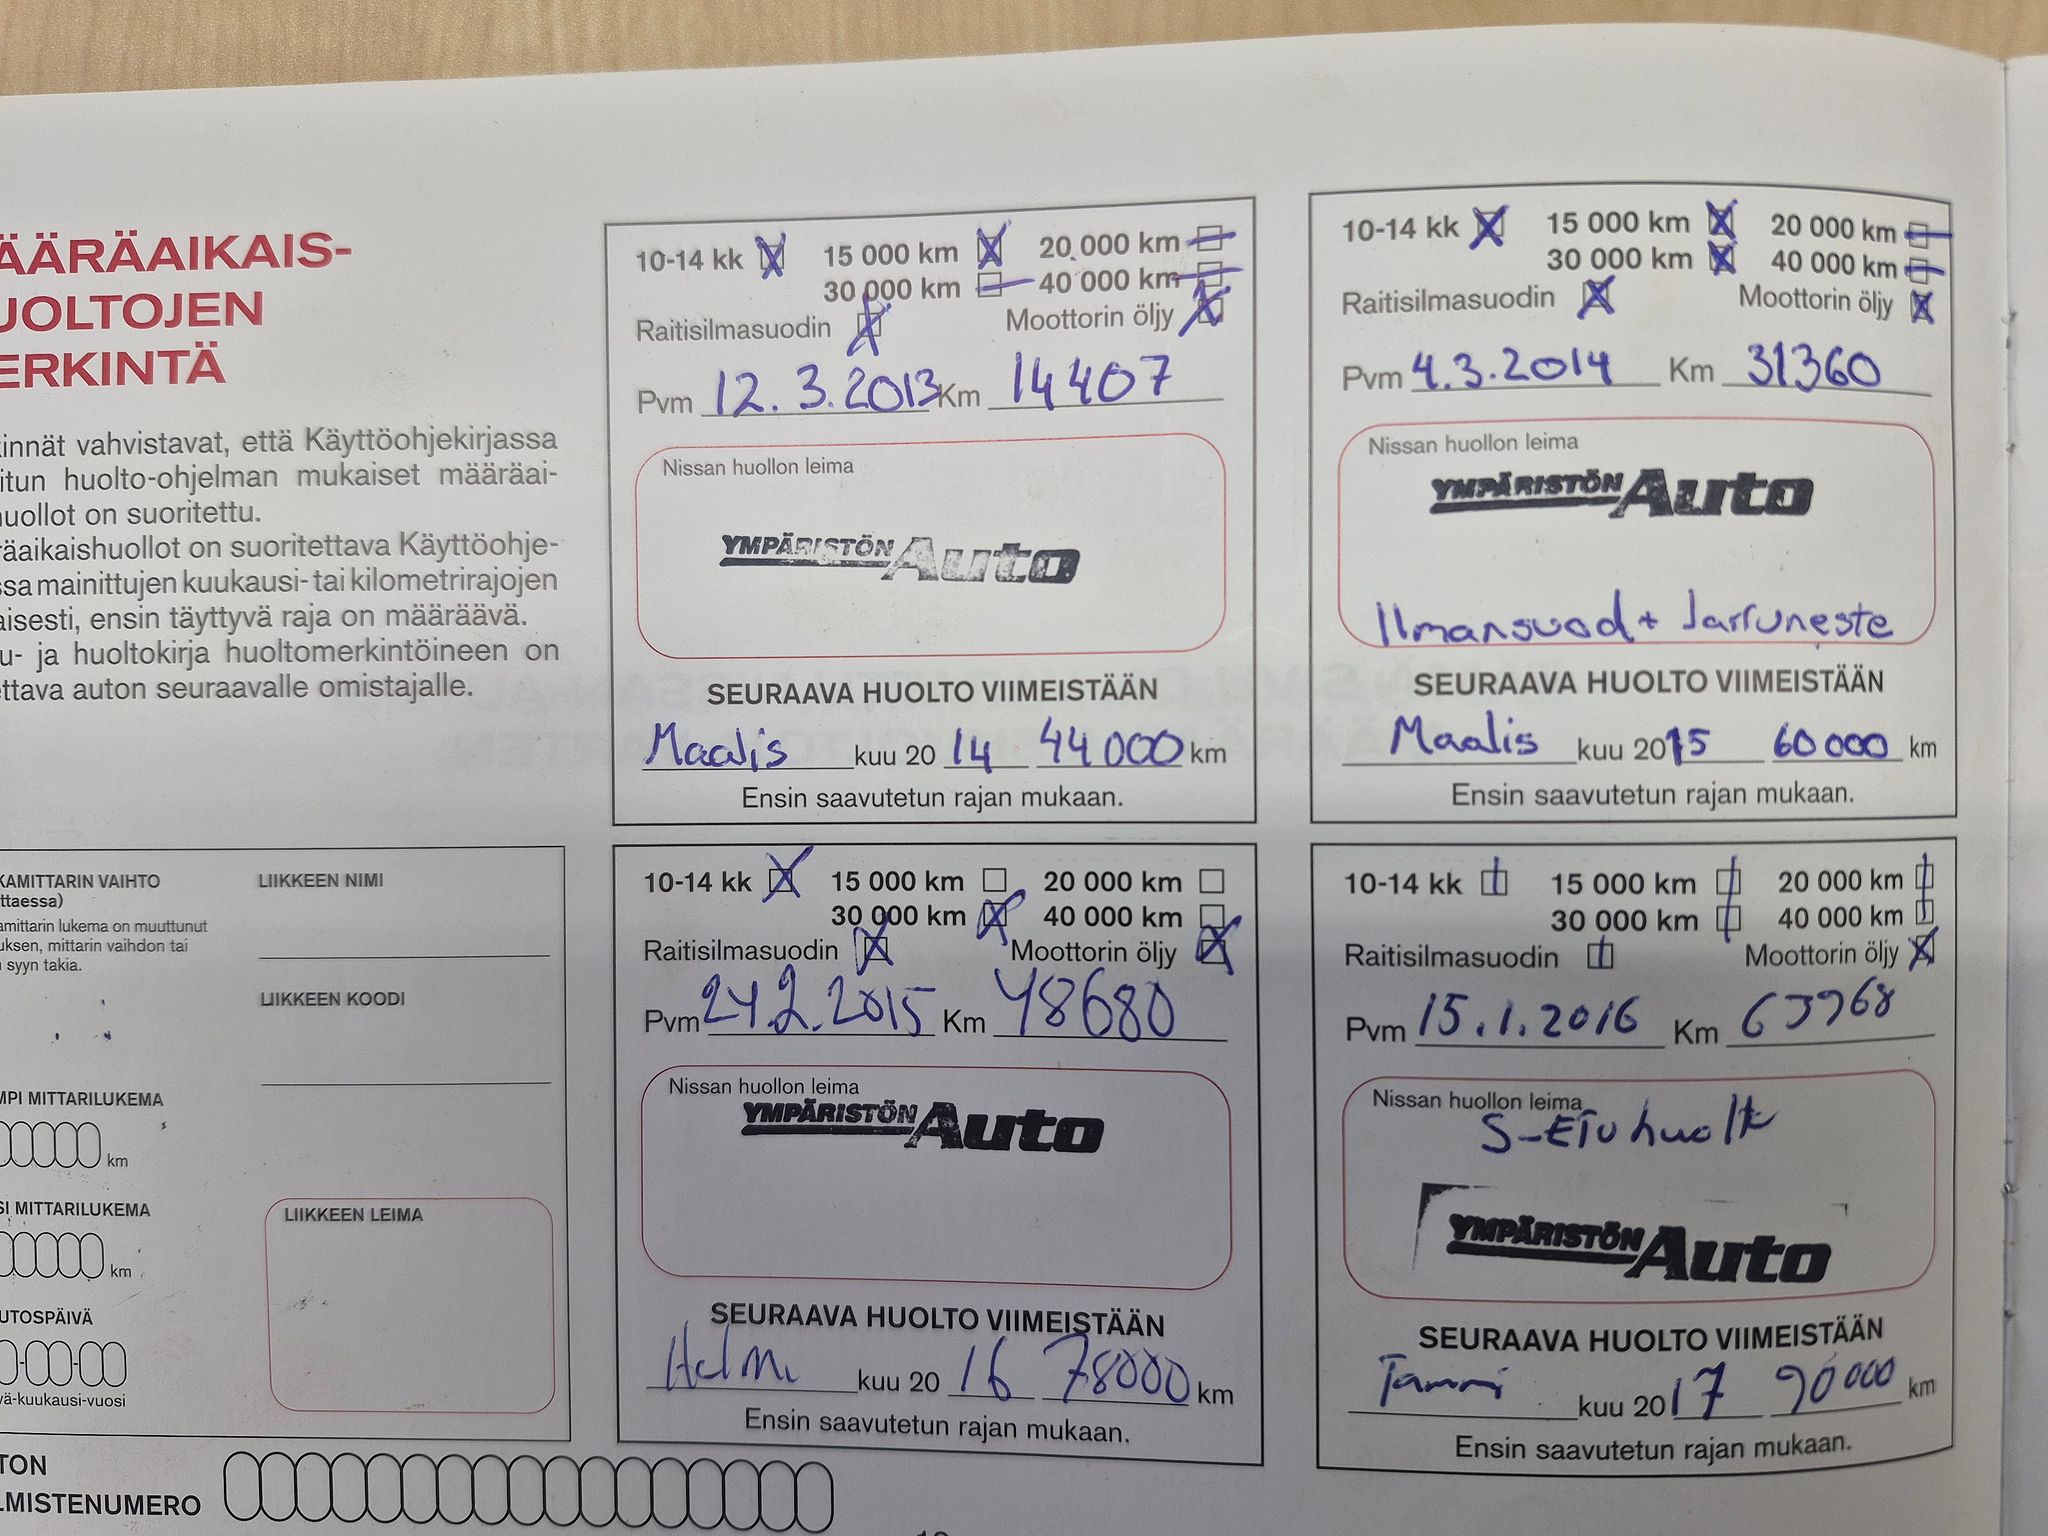 ÄÄRÄAIKAIS-
UOLTOJEN
ERKINTÄ
innät vahvistavat, että Käyttöohjekirjassa
itun huolto-ohjelman mukaiset määräai-
uollot on suoritettu.
räaikaishuollot on suoritettava Käyttöohje-
ssa mainittujen kuukausi- tai kilometrirajojen
aisesti, ensin täyttyvä raja on määräävä.
u- ja huoltokirja huoltomerkintöineen on
ettava auton seuraavalle omistajalle.
10-14 kk 15 000 km 20 000 km
30 000 km 40 000 km
Raitisilmasuodin Moottorin öljy
Pvm 12.3.2013 Km 14407
Nissan huollon leima
YMPÄRISTÖN Auto
SEURAAVA HUOLTO VIIMEISTÄÄN
Maalis kuu 20 14 44 000 km
Ensin saavutetun rajan mukaan.
10-14 kk 15 000 km 20 000 km
30 000 km 40 000 km
Raitisilmasuodin Moottorin öljy
Pvm 4.3.2014 Km 31360
Nissan huollon leima
YMPÄRISTÖN Auto
Ilmansuod + Jarruneste
SEURAAVA HUOLTO VIIMEISTÄÄN
Maalis kuu 2015 60 000 km
Ensin saavutetun rajan mukaan.
KAMITTARIN VAIHTO
ttaessa)
amittarin lukema on muuttunut
uksen, mittarin vaihdon tai
syyn takia.
LIIKKEEN NIMI
LIIKKEEN KOODI
MPI MITTARILUKEMA
km
SI MITTARILUKEMA
km
UTOSPÄIVÄ
vä-kuukausi-vuosi
LIIKKEEN LEIMA
TON
LMISTENUMERO
10-14 kk 15 000 km 20 000 km
30 000 km 40 000 km
Raitisilmasuodin Moottorin öljy
Pvm 24.2.2015 Km 48680
Nissan huollon leima
YMPÄRISTÖN Auto
SEURAAVA HUOLTO VIIMEISTÄÄN
Helmi kuu 20 16 78000 km
Ensin saavutetun rajan mukaan.
10-14 kk 15 000 km 20 000 km
30 000 km 40 000 km
Raitisilmasuodin Moottorin öljy
Pvm 15.1.2016 Km 63968
Nissan huollon leima
S-ETU huolto
YMPÄRISTÖN Auto
SEURAAVA HUOLTO VIIMEISTÄÄN
Tammi kuu 2017 90 000 km
Ensin saavutetun rajan mukaan.